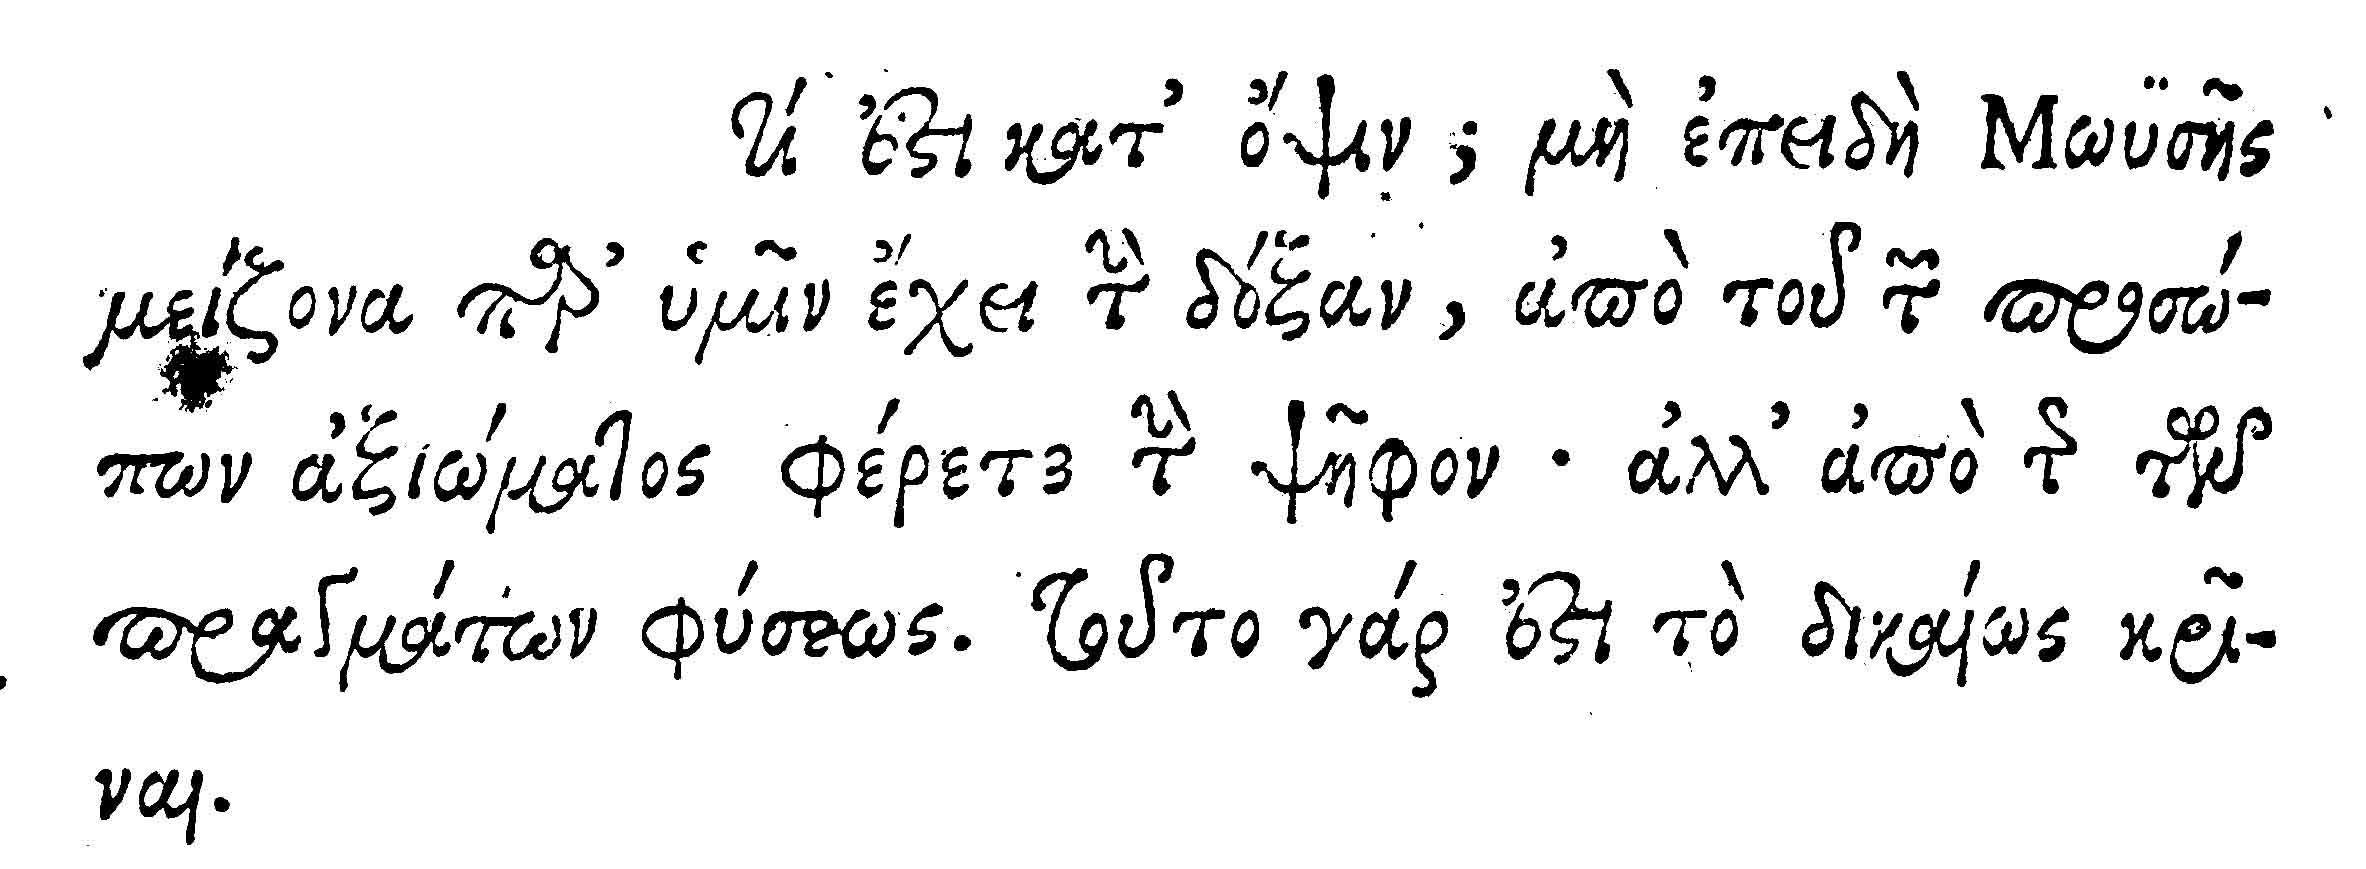 Τί ἐστι κατ’ ὄψιν; μὴ ἐπειδὴ Μωϋσῆς
μείζονα παρ’ ὑμῖν ἔχει τὴν δόξαν, ἀπὸ τοῦ τῶν προσώ-
πων ἀξιώματος φέρετε τὴν ψῆφον· ἀλλ’ ἀπὸ τῆς τῶν
πραγμάτων φύσεως. Τοῦτο γάρ ἐστι τὸ δικαίως κρῖ-
ναι.